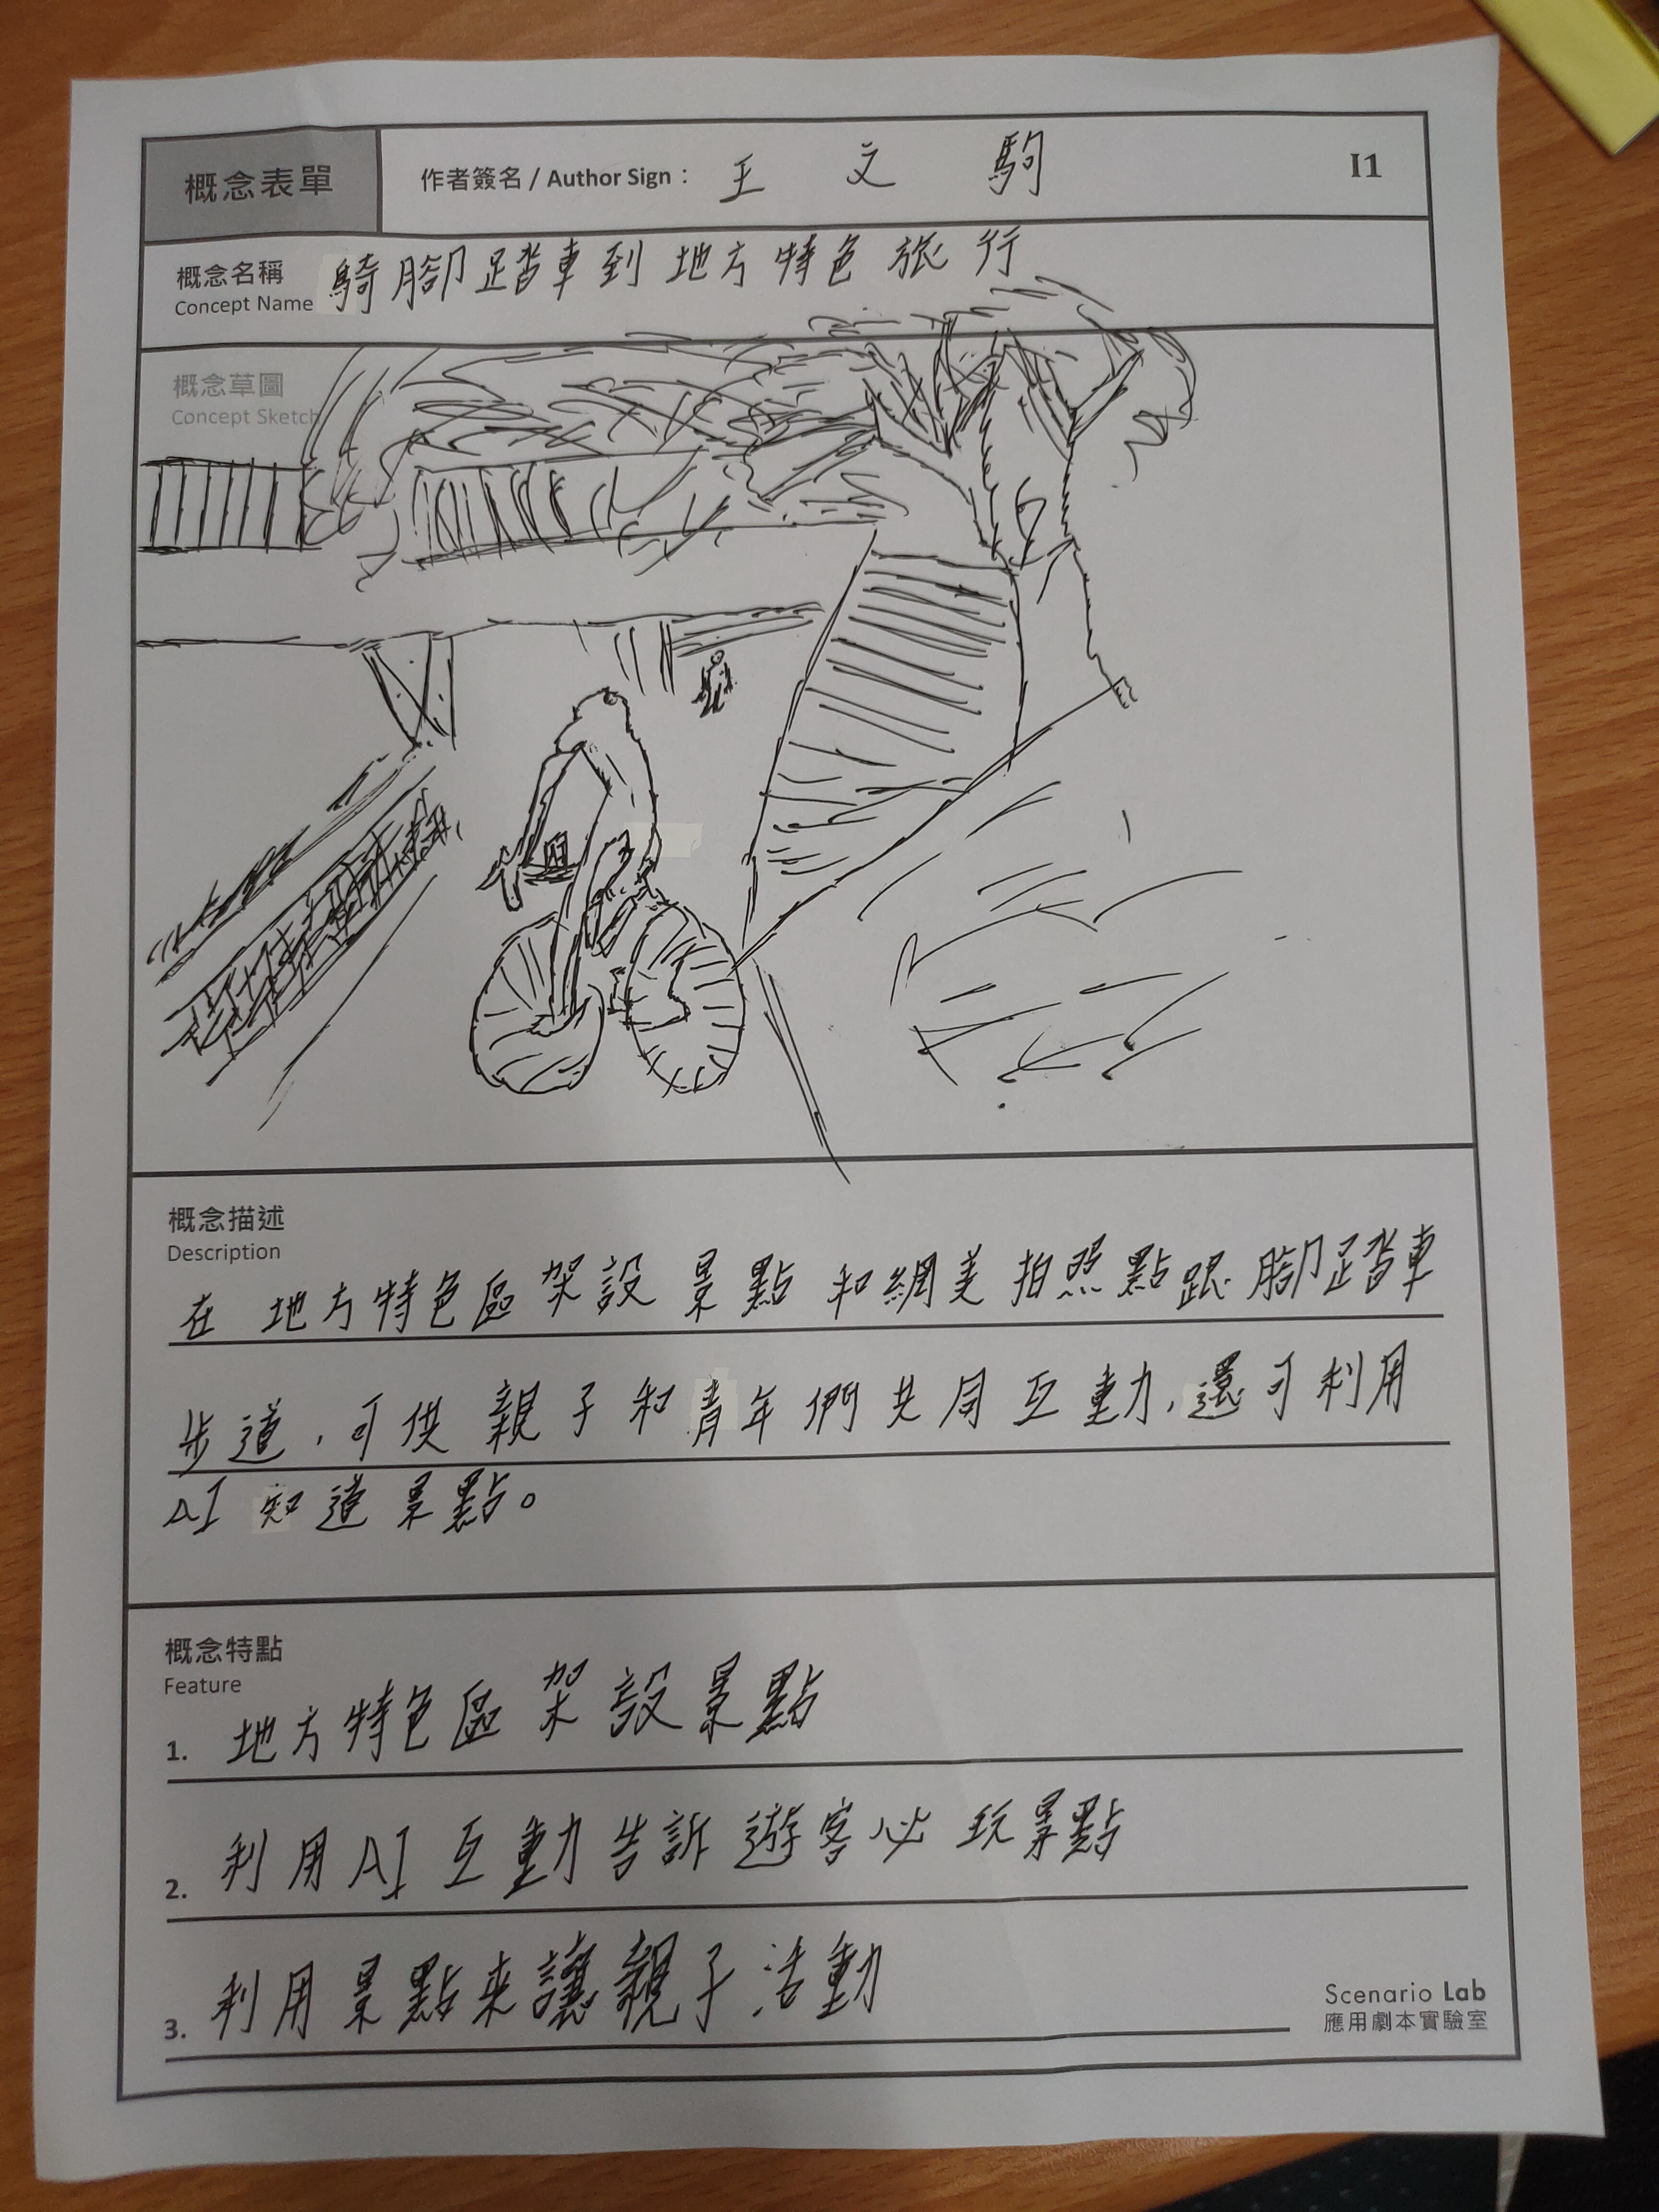 概念表單
作者簽名 / Author Sign：王文駒
I1
概念名稱
Concept Name
騎腳踏車到地方特色旅行
概念草圖
Concept Sketch
概念描述
Description
在地方特色區架設景點和網美拍照點跟腳踏車
步道,可供親子和青年們共同互動,還可利用
AI知道景點。
概念特點
Feature
1. 地方特色區架設景點
2. 利用AI互動告訴遊客必玩景點
3. 利用景點來讓親子活動
Scenario Lab
應用劇本實驗室